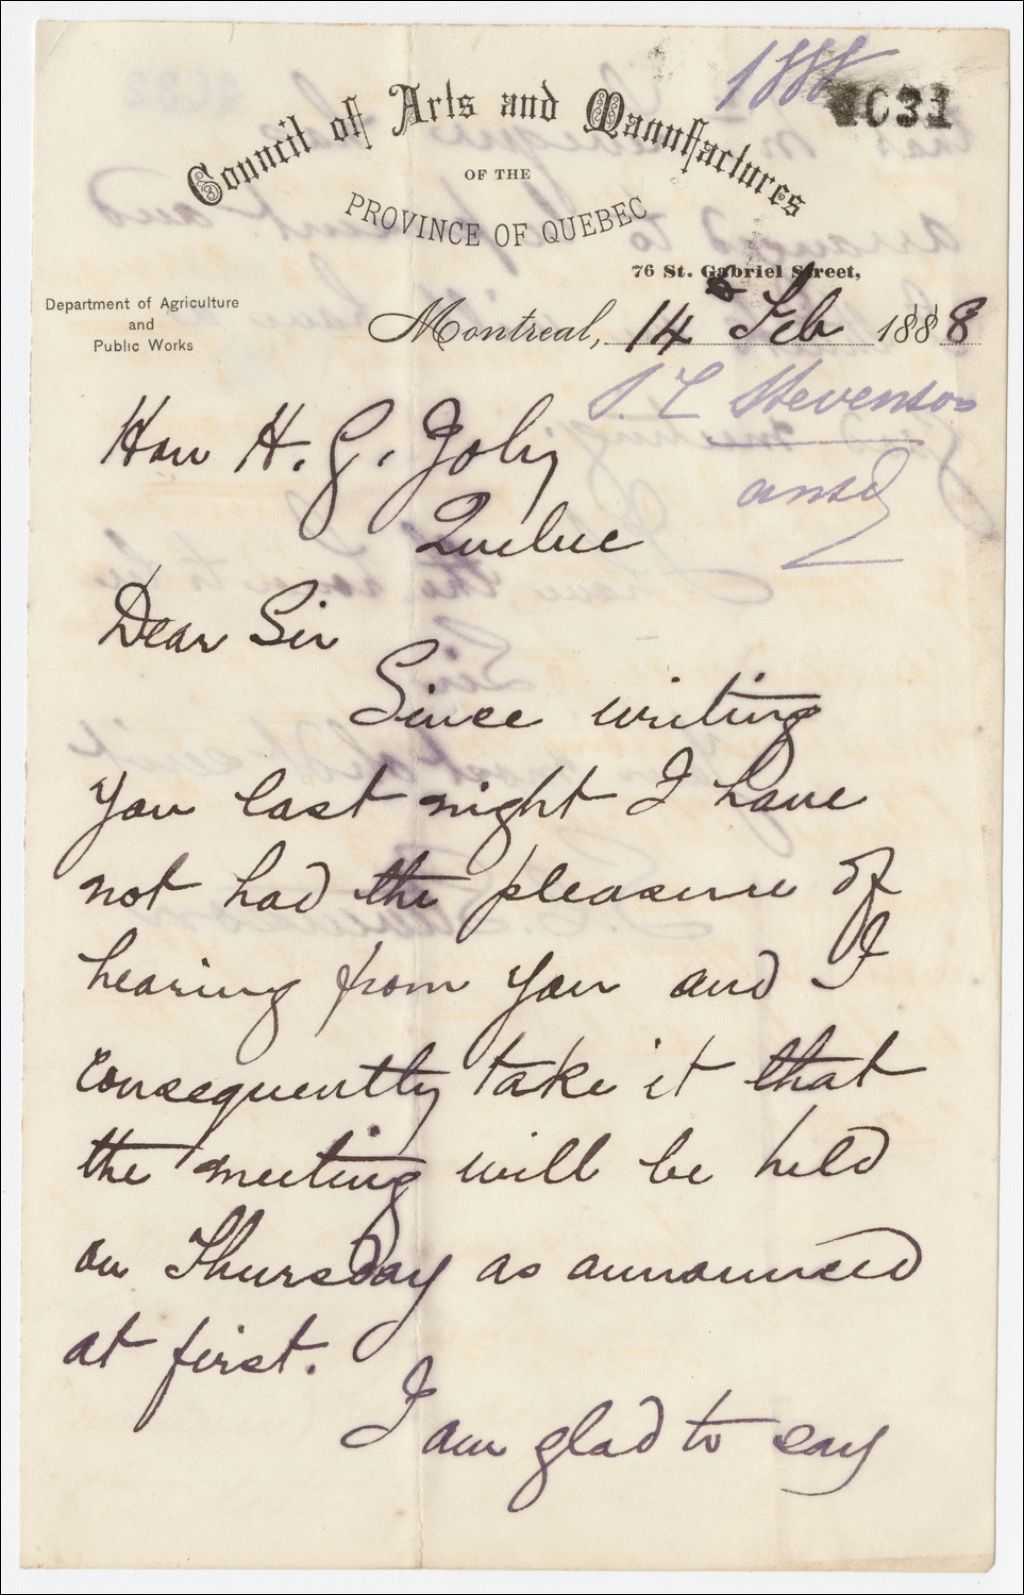 1888
Council of Arts and Manufactures
OF THE
PROVINCE OF QUEBEC
76 St. Gabriel Street,
Department of Agriculture
and
Public Works
Montreal, 14 Feb 1888
S. C. Stevenson
ansd
Hon H. G. Joly
Quebec
Dear Sir
Since writing
you last night I have
not had the pleasure of
hearing from you and I
consequently take it that
the meeting will be held
on Thursday as announced
at first.
I am glad to say